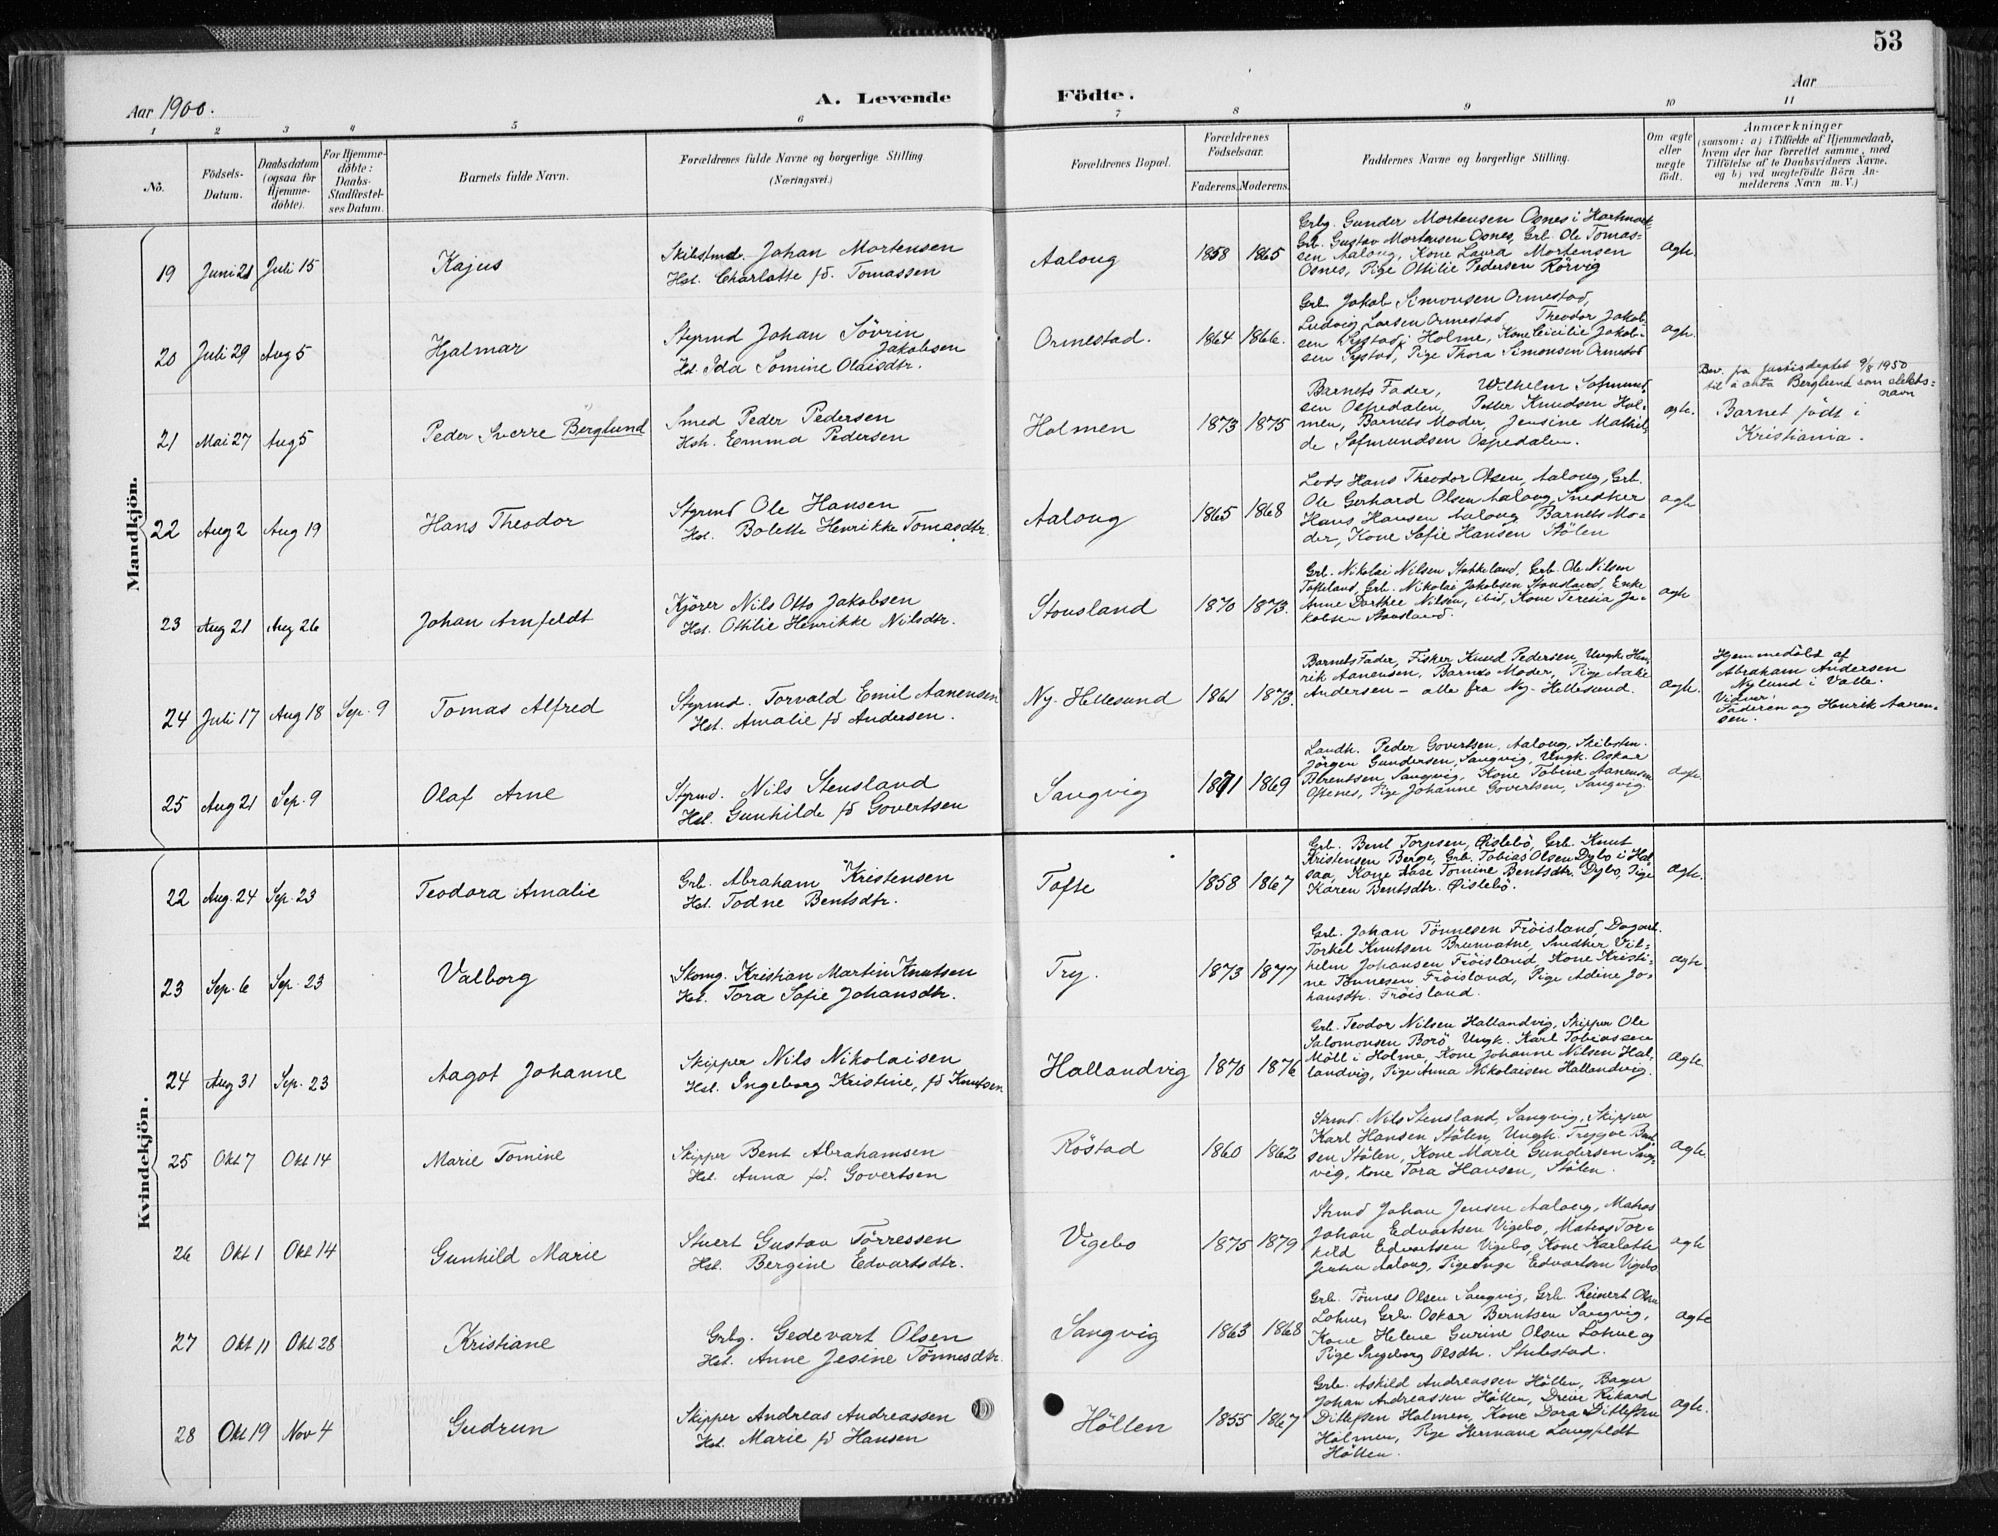 53
Aar 1900.
A. Levende Födte.
Aar
1 2 3 4 5 6 7 8 9 10 11
No.
Födsels-Datum.
Daabsdatum (ogsaa for Hjemme-döbte).
For Hjemme-döbte: Daabs-Stadfæstel-ses Datum.
Barnets fulde Navn.
Forældrenes fulde Navne og borgerlige Stilling.
(Næringsvei.)
Forældrenes Bopæl.
Forældrenes Födselsaar.
Faderens. Moderens.
Faddernes Navne og borgerlige Stilling.
Om ægte eller uægte födt.
Anmærkninger
(saasom: a) i Tilfælde af Hjemmedaab,
hvem der har forrettet samme, med
Tilföielse af to Daabsvidners Navne.
og b) ved uægtefödte Börn An-
melderens Navn m. V.)
Mandkjön.
19 Juni 21 Juli 15 Kajus
Skibstmd. Johan Mortensen
Hst. Charlotte fd. Tomassen
Aalong 1858 1865
Grbg. Gunder Mortensen Osnes i Hartmark
Grb. Gustav Mortensen Osnes, Grb. Ole Tomas-
sen Aalong, Kone Laura Mortensen
Osnes, Pige Ottilie Pedersen Rörvig
ægte.
20 Juli 29 Aug 5 Hjalmar
Styrmd Johan Sövrin
Jakobsen
Hst. Ida Somine Olaisdtr.
Ormestad. 1864 1866.
Grb. Jakob Simonsen Ormestad,
Ludvig Larsen Ormestad Theodor Jakob-
sen Rystad i Holme, Kone Cicilie Jakob-
sen Rystad, Pige Thora Simonsen Ormestad
ægte.
21 Mai 27 Aug 5 Peder Sverre Berglund
Smed Peder Pedersen
Hst. Emma Pedersen
Holmen 1873 1875
Barnets Fader, Wilhelm Sofmund
sen Ospedalen, Petter Knudsen Hol-
men, Barnets Moder, Jensine Mathil-
de Sofmundsen Ospedalen.
ægte.
Bev. fra Justisdeptet 9/8 1950
til å anta Berglund som slekts-
navn
Barnet födt i
Kristiania.
22 Aug 2 Aug 19 Hans Theodor
Styrmd Ole Hansen
Hst. Bolette Henrikke Tomasdtr.
Aalong 1865 1868
Lods Hans Theodor Olsen, Aalong, Grb.
Ole Gerhard Olsen Aalong, Snedker
Hans Hansen Aalong, Barnets Mo-
der, Kone Sofie Hansen Stölen
ægte
23 Aug 21 Aug 26 Johan Arnfeldt
Kjörer Nils Otto Jakobsen
Hst. Othilie Henrikke Nilsdtr.
Stousland 1870 1873.
Grb. Nikolai Nilsen Stokkeland, Grb. Ole Nilsen
Tofteland, Grb. Nikolai Jakobsen Stousland, Enke
Anne Dorthee Nilsen, ibid, Kone Teresia Ja-
kobsen Stousland.
ægte
24 Juli 17 Aug 18 Sep. 9 Tomas Alfred
Styrmd. Torvald Emil Aanensen
Hst. Amalie fd Andersen.
Ny-Hellesund 1861 1873.
Barnets Fader, Fisker Knud Pedersen, Ungk. Hen-
rik Aanensen, Barnets Moder, Pige
Andersen – alle fra Ny-Hellesund.
ægte.
Hjemmedöbt af
Abraham Andersen
Nylund i Valle.
Vidner:
Faderen og Henrik Aanen-
sen.
25 Aug 21 Sep. 9 Olaf Arne
Styrmd. Nils Stensland
Hst. Gunhilde fd Govertsen
Sangvig 1871 1869
Landh. Peder Govertsen, Aalong, Skibstm.
Jörgen Gundersen, Sangvig, Ungk. Oskar
Berentsen, Sangvig, Kone Tobine Aanensen
Oftenes, Pige Johanne Govertsen, Sangvig.
ægte.
Kvindekjön.
22 Aug. 24 Sep. 23 Teodora Amalie
Grb. Abraham Kristensen
Hst. Todne Bentsdtr.
Tofte 1858 1867
Grb. Bent Torjesen, Öislebö, Grb. Knut
Kristensen Berge, Grb. Tobias Olsen Dybo i Hal-
saa, Kone Aase Tomine Bentsdtr. Dybo, Pige
Karen Bentsdtr. Öislebö.
ægte.
23 Sep. 6 Sep. 23 Valborg
Skomg. Kristian Martin Knutsen
Hst. Tora Sofie Johansdtr.
Try. 1873 1877
Grb. Johan Tönnesen Fröisland, Dagarb.
Torkel Knutsen Brunvatne, Snedker Vil-
helm Johansen Fröisland, Kone Kristi-
ne Tönnesen Fröisland, Pige Adine Jo-
hansdtr. Fröisland.
ægte.
24 Aug 31 Sep. 23 Aagot Johanne
Skipper Nils Nikolaisen
Hst. Ingeborg Kristine, fd Knutsen
Hallandvig 1870 1876
Grb. Teodor Nilsen Hallandvig, Skipper Ole
Salomonsen Borö, Ungk. Karl Tobiassen
Möll i Holme, Kone Johanne Nilsen Hal-
landvig, Pige Anna Nikolaisen Hallandvig.
ægte.
25 Okt 7 Okt 14 Marie Tomine
Skipper Bent Abrahamsen
Hst. Anna fd. Govertsen
Röstad 1860 1862
Strmd. Nils Stensland, Sangvig, Skipper
Karl Hansen Stölen, Ungk. Trygve Bent-
sen Stölen, Kone Marie Gundersen Sang-
vig, Kone Tora Hansen, Stölen.
ægte.
26 Okt 1 Okt 14 Gunhild Marie
Stuert Gustav Törressen
Hst. Bergine Edvartsdtr.
Vigebo 1875 1879
Strmd Johan Jensen Aalong, Matros
Johan Edvartsen Vigebo, Matros Tor-
kild Edvartsen Vigebo, Kone Karlotte
Jensen Aalong, Pige Inga Edvartsen Vigebo
ægte
27 Okt 11 Okt 28 Kristiane
Grbg. Gedevart Olsen
Hst. Anne Jesine Tönnesdtr.
Sangvig 1863 1868
Grb. Tönnes Olsen Sangvig, Grb. Reinert Olsen
Lohne, Grb. Oskar Berntsen Sangvig,
Kone Helene Gurine Olsen Lohne og
Pige Ingeborg Olsdtr. Stubstad.
ægte
28 Okt 19 Nov 4 Gudrun
Skipper Andreas Andreassen
Hst. Marie fd Hansen
Höllen 1855 1867
Grb. Askild Andreassen Höllen, Bager
Johan Andreassen Höllen, Dreier Rikard
Ditlefsen Holmen, Kone Dora Ditlefsen
Holmen, Pige Hermana Langfeldt
Höllen.
ægte.